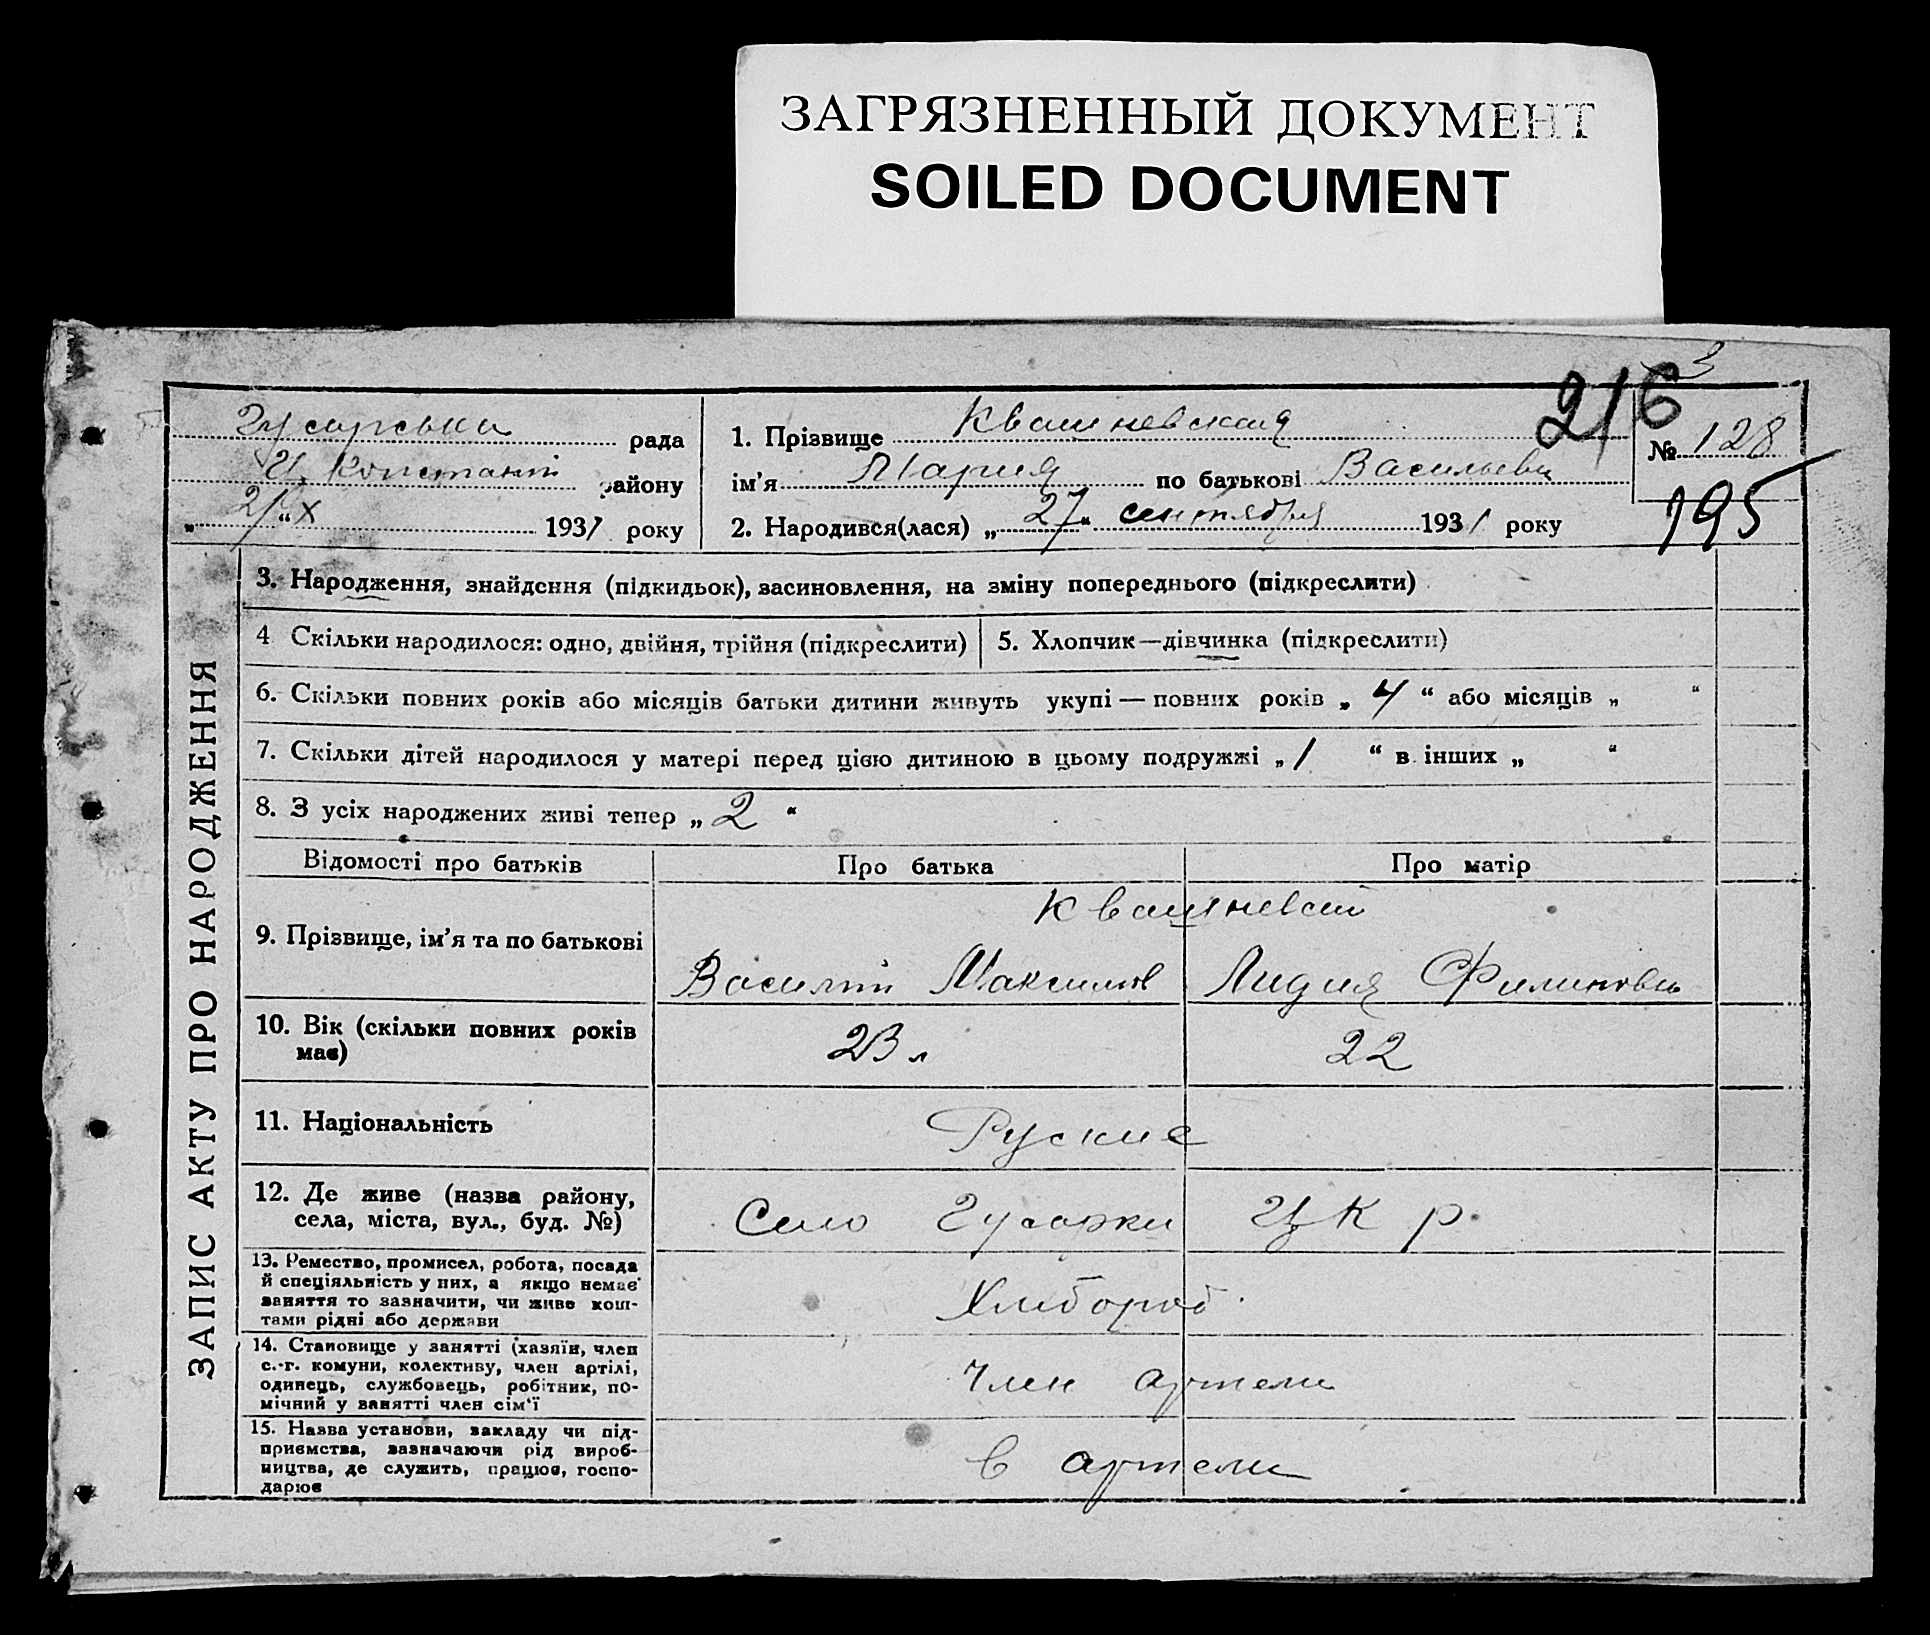 ЗАГРЯЗНЕННЫЙ ДОКУМЕНТ
SOILED DOCUMENT
3
216
Гусарська рада
Ц. Констант району
„ 2/X “ 1931 року
1. Прізвище Квашневская
ім’я Мария по батькові Васильевн
2. Народився(лася) „ 27 “ сентября 1931 року
№ 128
195
ЗАПИС АКТУ ПРО НАРОДЖЕННЯ
3. Народження, знайдення (підкидьок), засиновлення, на зміну попереднього (підкреслити)
4 Скільки народилося: одно, двійня, трійня (підкреслити)
5. Хлопчик—дівчинка (підкреслити)
6. Скільки повних років або місяців батьки дитини живуть укупі — повних років „ 4 “ або місяців „ “
7. Скільки дітей народилося у матері перед цією дитиною в цьому подружжі „ 1 “ в інших „ “
8. З усіх народжених живі тепер „ 2 “
Відомості про батьків Про батька Про матір
9. Прізвище, ім’я та по батькові
Квашневский
Василий Максимов Лидия Филиповн
10. Вік (скільки повних років
має)
23 л 22
11. Національність
Руские
12. Де живе (назва району,
села, міста, вул., буд. №)
Село Гусарки Ц К р.
13. Ремество, промисел, робота, посада
й спеціяльність у них, а якщо немає
заняття то зазначити, чи живе кош-
тами рідні або держави
Хлибороб
14. Становище у занятті (хазяїн, член
с.-г. комуни, колективу, член артілі,
одинець, службовець, робітник, по-
мічний у занятті член сім‘ї
Член артели
15. Назва установи, закладу чи під-
приємства, зазначаючи рід вироб-
ництва, де служить, працює, госпо-
дарює
в артели